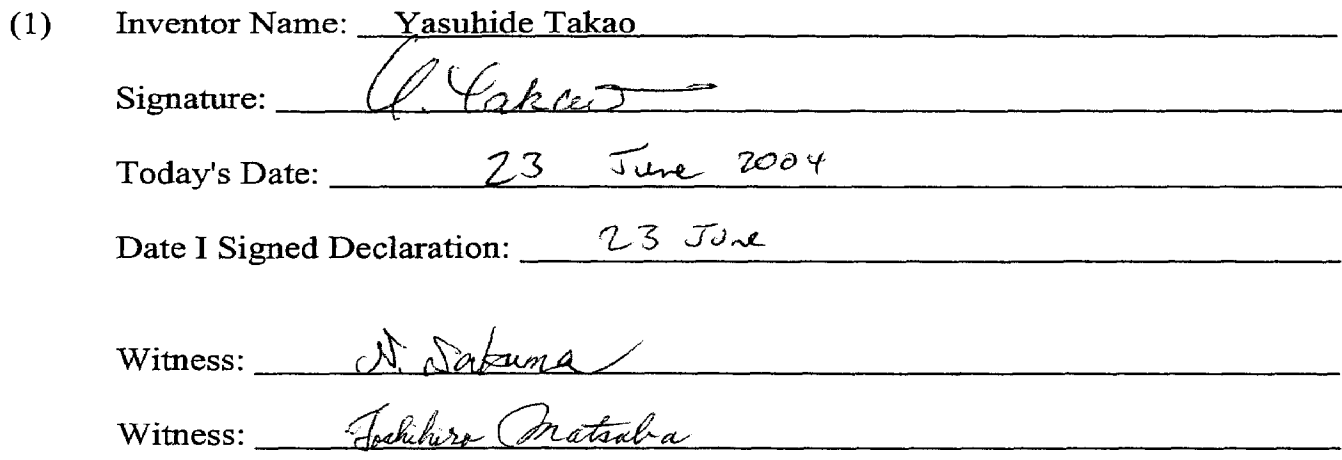 (1) Inventor Name: Yasuhide Takao
Signature: Y. Takao
Today's Date: 23 June 2004
Date I Signed Declaration: 23 June
Witness: N. Sakuma
Witness: Toshihiro Matsuba